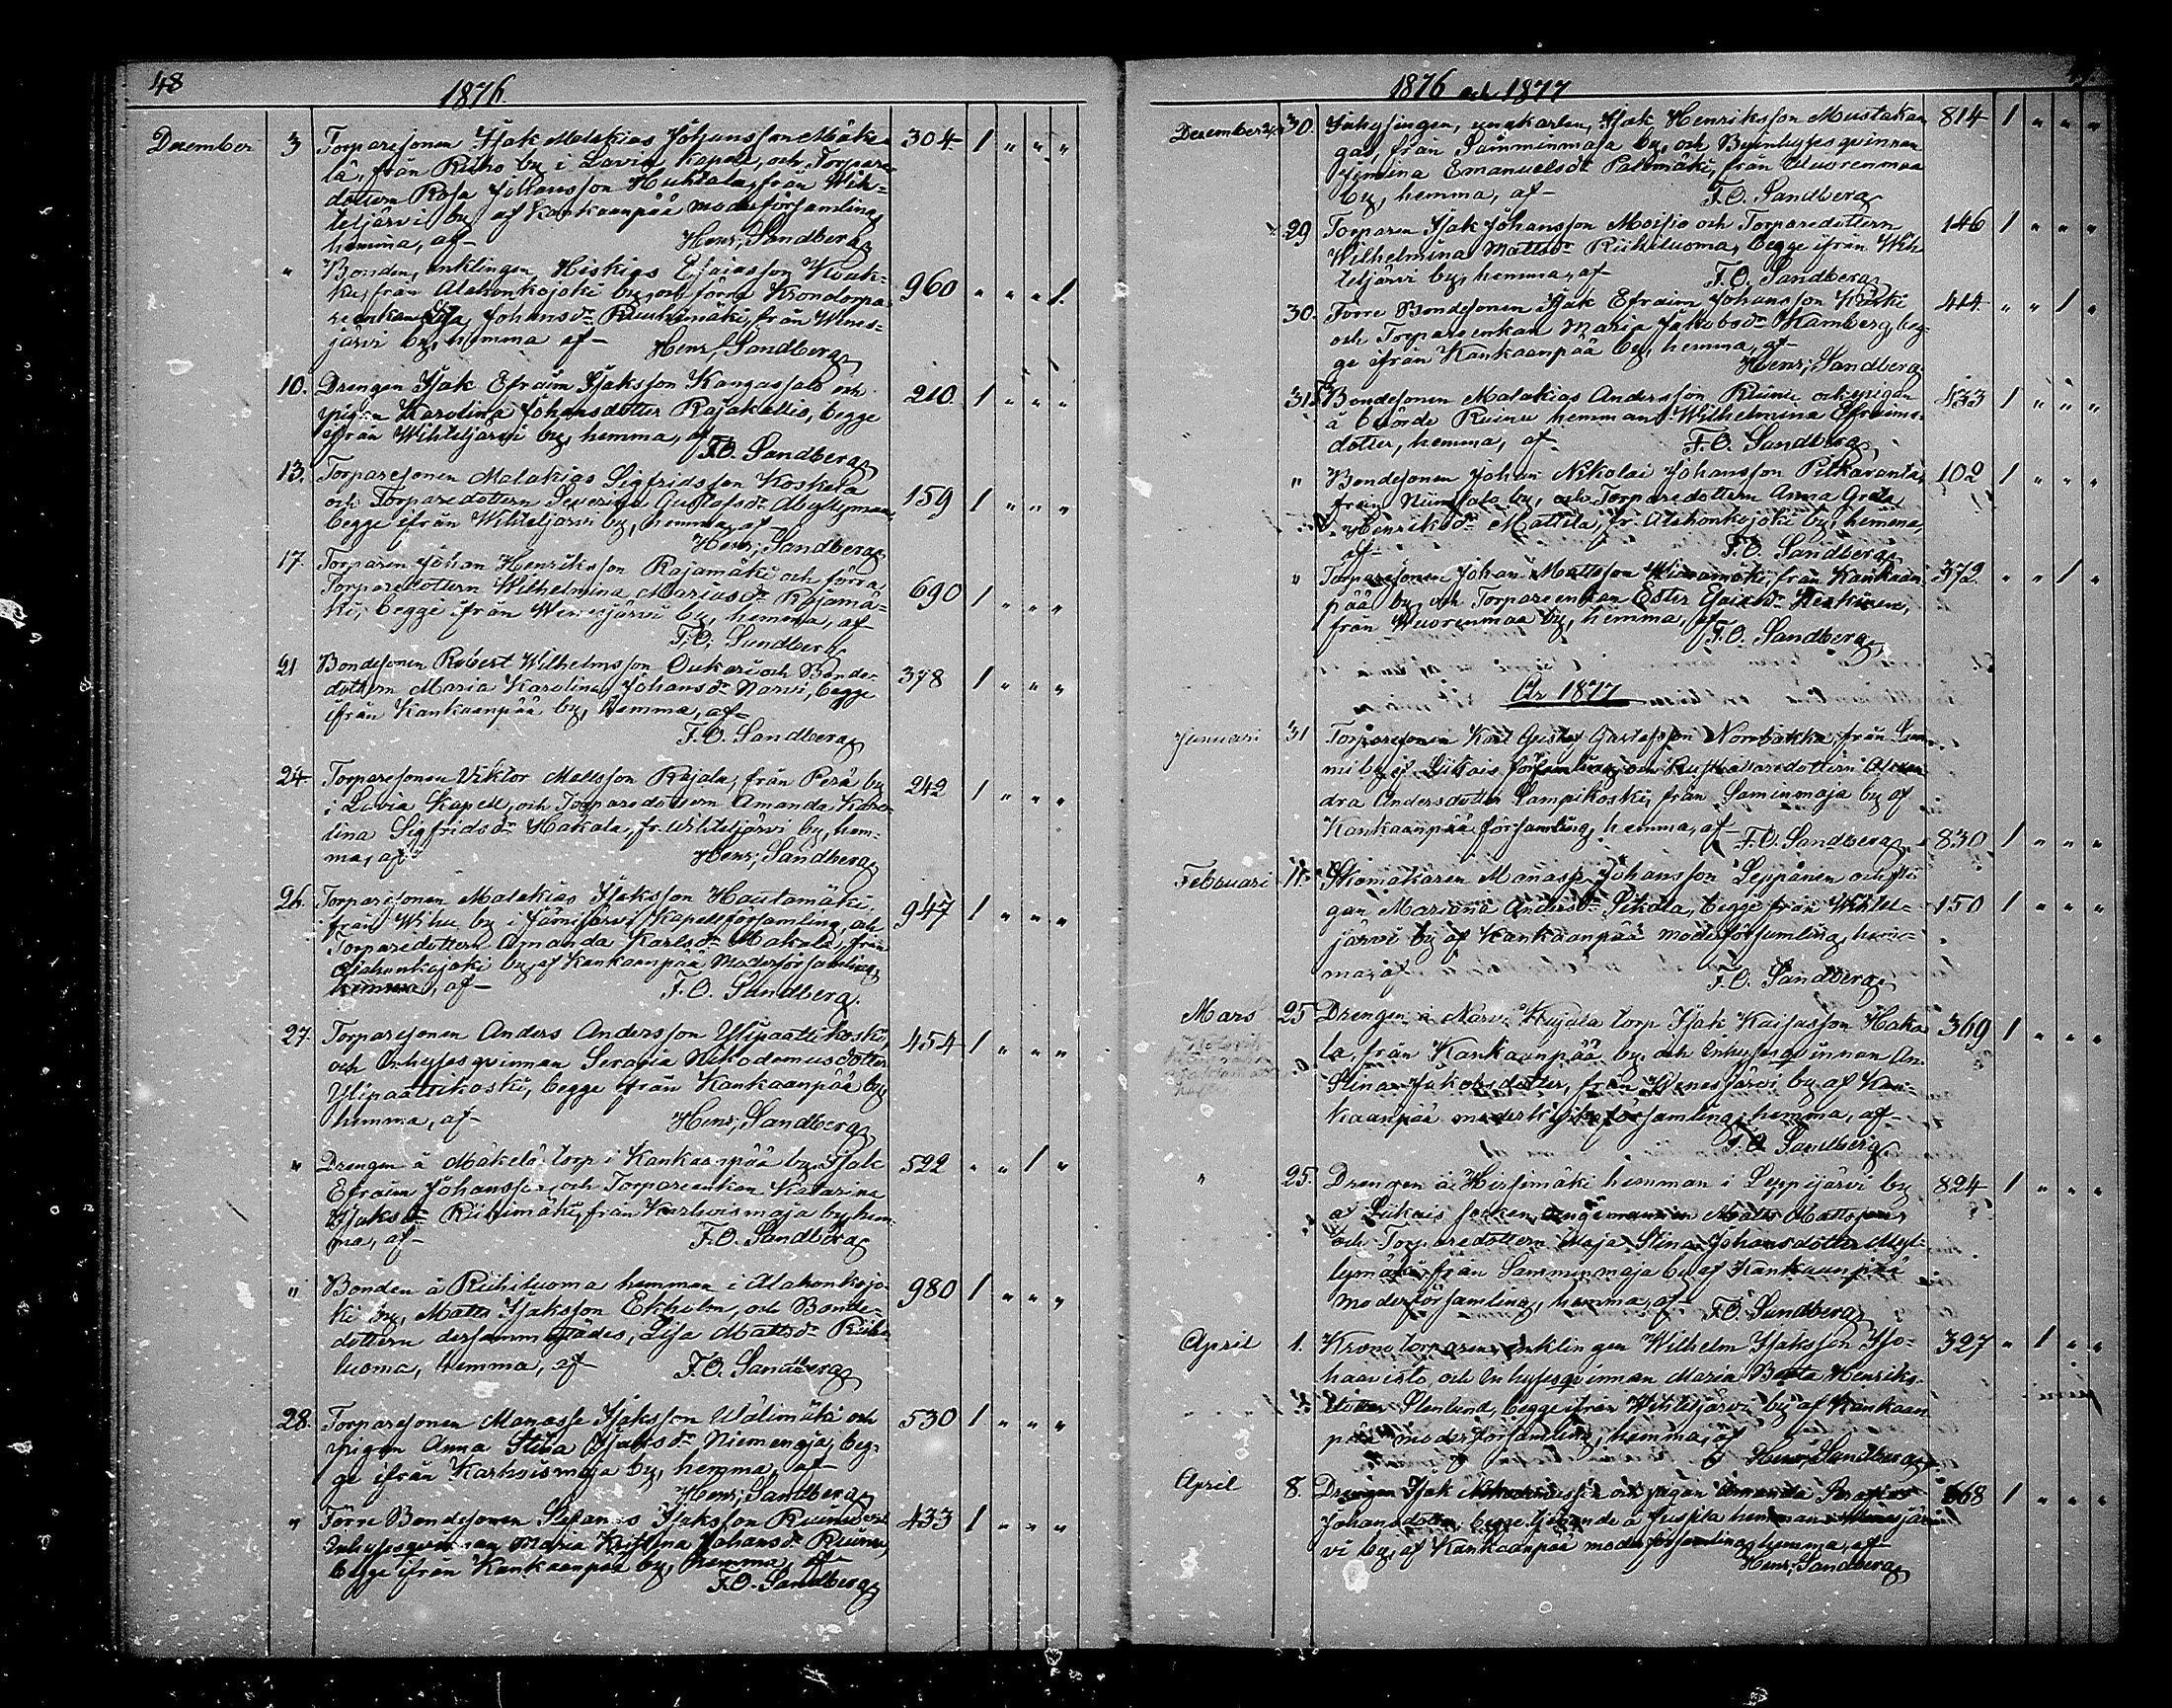 48
1876.
December 3 Torparesonen Isak Malakias Johansson Mäke= 304 1 " " "
lä, från Riiho by i Lavia kapell, och Torpare=
dottern Rosa Johansson Huhtala, från Wih=
teljärvi by af Kankaanpää moderförsamling
hemma, af— Henr; Sandberg
" Bonden, enklingen Hiskias Esaiasson Kouk= 960 " " " 1.
ku, från Alahonkojoki by, och förra Kronotorpa=
reenkan Lisa Johansdr Ruuhimäki, från Wenes=
järvi by, hemma af— Henr; Sandberg
10. Drengen Isak Efraim Isaksson Kangassalo och 210 1 " " "
pigan Karolina Johansdotter Rajakallio, begge
ifrån Wihteljärvi by, hemma, af
F.O. Sandberg
13. Torparesonen Malakias Sigfridsson Koskela 159 1 " " "
och Torparedottern Severina Gustafsdr
begge ifrån Wihteljärvi by, hemma, af—
Henr; Sandberg
17. Torparen Johan Henriksson Rajamäki och förra 690 1 " " "
Torparedottern Wilhelmina Mariasdr Rajamä=
ki, begge ifrån Wenesjärvi by, hemma, af
F.O. Sandberg
21 Bondesonen Robert Wilhelmsson Oukari och Bonde= 378 1 " " "
dottern Maria Karolina Johansdr Narvi, begge
ifrån Kankaanpää by, hemma, af—
F.O. Sandberg
24. Torparesonen Viktor Mattsson Rajala, från Perä by 242 1 " " "
i Lavia kapell, och Torparedottern Amanda Karo=
lina Sigfridsdr Hakala, fr. Wihteljärvi by, hem=
ma, af Henr; Sandberg
26. Torparesonen Malakias Isaksson Hautamäki, 947 1 " " "
från Wihu by i Jämijärvi kapellförsamling, och
Torparedottern Amanda Karlsdr Makala, från
Alahonkojoki by, af Kankaanpää Moderförsamling
hemma, af— F.O. Sandberg.
27. Torparesonen Anders Andersson Ylipaattikoski, 454 1 " " "
och Inhysesqvinnan Serafia Nikodemusdotter
Ylipaattikoski, begge ifrån Kankaanpää by,
hemma, af— Henr; Sandberg
" Drengen å Mäkelä torp i Kankaanpää by, Isak 522 " " 1 "
Efraim Johansson, och Torpareenkan Katarina
Isaksdr Riihimäki, från Karhoismaja by, hem=
ma, af— F.O. Sandberg
" Bonden å Riihiluoma hemman i Alahonkojo= 980 1 " " "
ki by, Matts Isaksson Ekholm, och Bonde=
dottern dersammastädes, Lisa Mattsdr Riihi
luoma, hemma, af F.O. Sandberg
28. Torparesonen Manasse Isaksson Wälimäki och 530 1 " " "
pigan Anna Stina Isaksdr Niemenoja, beg=
ge ifrån Karhoismaja by, hemma, af—
Henr; Sandberg
" Förre Bondesonen Stefanus Isaksson Ruinu och 433 1 " " "
Inhysesqvinnan Maria Kristina Johansdr Ruinu,
begge ifrån Kankaanpää by, hemma, af—
F.O. Sandberg
1876 och 1877
December 30. Inhysingen, ungkarlen, Isak Henriksson Mustakan 814 1 " " "
gas, från Samminmaja by, och Inhysesqvinnan
Emanuelsdr Palomäki, från Wuorenmaa
by, hemma, af— F.O. Sandberg
29 Torparen Isak Johansson Moisio och Torparedottern 146 1 " " "
Wilhelmina Mattsdr Riihiluoma, begge ifrån Wih
teljärvi by, hemma, af F.O. Sandberg
30. Förre Bondesonen Isak Efraim Johansson Koski 444 " " 1 "
och Torpareenkan Maria Jakobsdr Kamberg, beg=
ge ifrån Kankaanpää by, hemma, af
Henr; Sandberg
31. Bondesonen Malakias Andersson Ruinu och pigan 433 1 " " "
å berörde Ruinu hemman Wilhelmina Efraims=
dotter, hemma, af— F.O. Sandberg
" Bondesonen Johan Nikolai Johansson Pitkäranta, 102 1 " " "
från Niinisalo by, och Torparedottern Anna Greta
Henriksdr Mattila, fr. Alahonkojoki by, hemma,
af— F.O. Sandberg
" Torparesonen Johan Mattsson från Kankaan 372 " " 1 "
pää by, och Torpareenkan Ester Esaiasdr
från Wuorenmaa by, hemma, af
F.O. Sandberg
År 1877
Januari 31 Torparesonen Karl Gustaf Gustafsson Norrbakka, från
mi by af Sikais församling, och dottern
dra Andersdotter Lampikoski, från Saminmaja by af
Kankaanpää församling, hemma, af— F.O. Sandberg 830 1 " " "
Februari 11. Skomakaren Manasse Johansson Leppänen och pi
gan Mariana Andersdr Sikala, begge från Wihtel= 150 1 " " "
järvi by af Kankaanpää moderförsamling, hem=
ma, af F.O. Sandberg
Mars 25 Drengen å Narvi Kujala torp Isak Kaisasson Haka 369 1 " " "
la, från Kankaanpää by och Inhysesqvinnan An
Stina Jakobsdotter, från Wenesjärvi by af Kan=
kaanpää moderkyrkoförsamling, hemma, af—
F.O. Sandberg
" 25. Drengen å Hirsimäki hemman i Leppijärvi by 824 1 " " "
af Sikais socken, ungemannen Matts Mattsson
och Torparedottern Maja Stina Johansdotter Myl=
lymäki från Samminmaja by af Kankaanpää
moderförsamling, hemma, af F.O. Sandberg
April 1. Kronotorparen, enklingen Wilhelm Isaksson Iso= 327 " 1 " "
haavisto och Inhysesqvinnan Maria Berta Henriks=
dotter Stenlund, begge ifrån Wihteljärvi by af Kankaan
pää moderförsamling, hemma, af
Henr; Sandberg
April 8. Drengen Isak och pigan Amanda Serafia 668 1 " " "
Johansdotter, begge å hemman i Wenesjär
vi by, af Kankaanpää moderförsamling hemma, af—
Henr; Sandberg